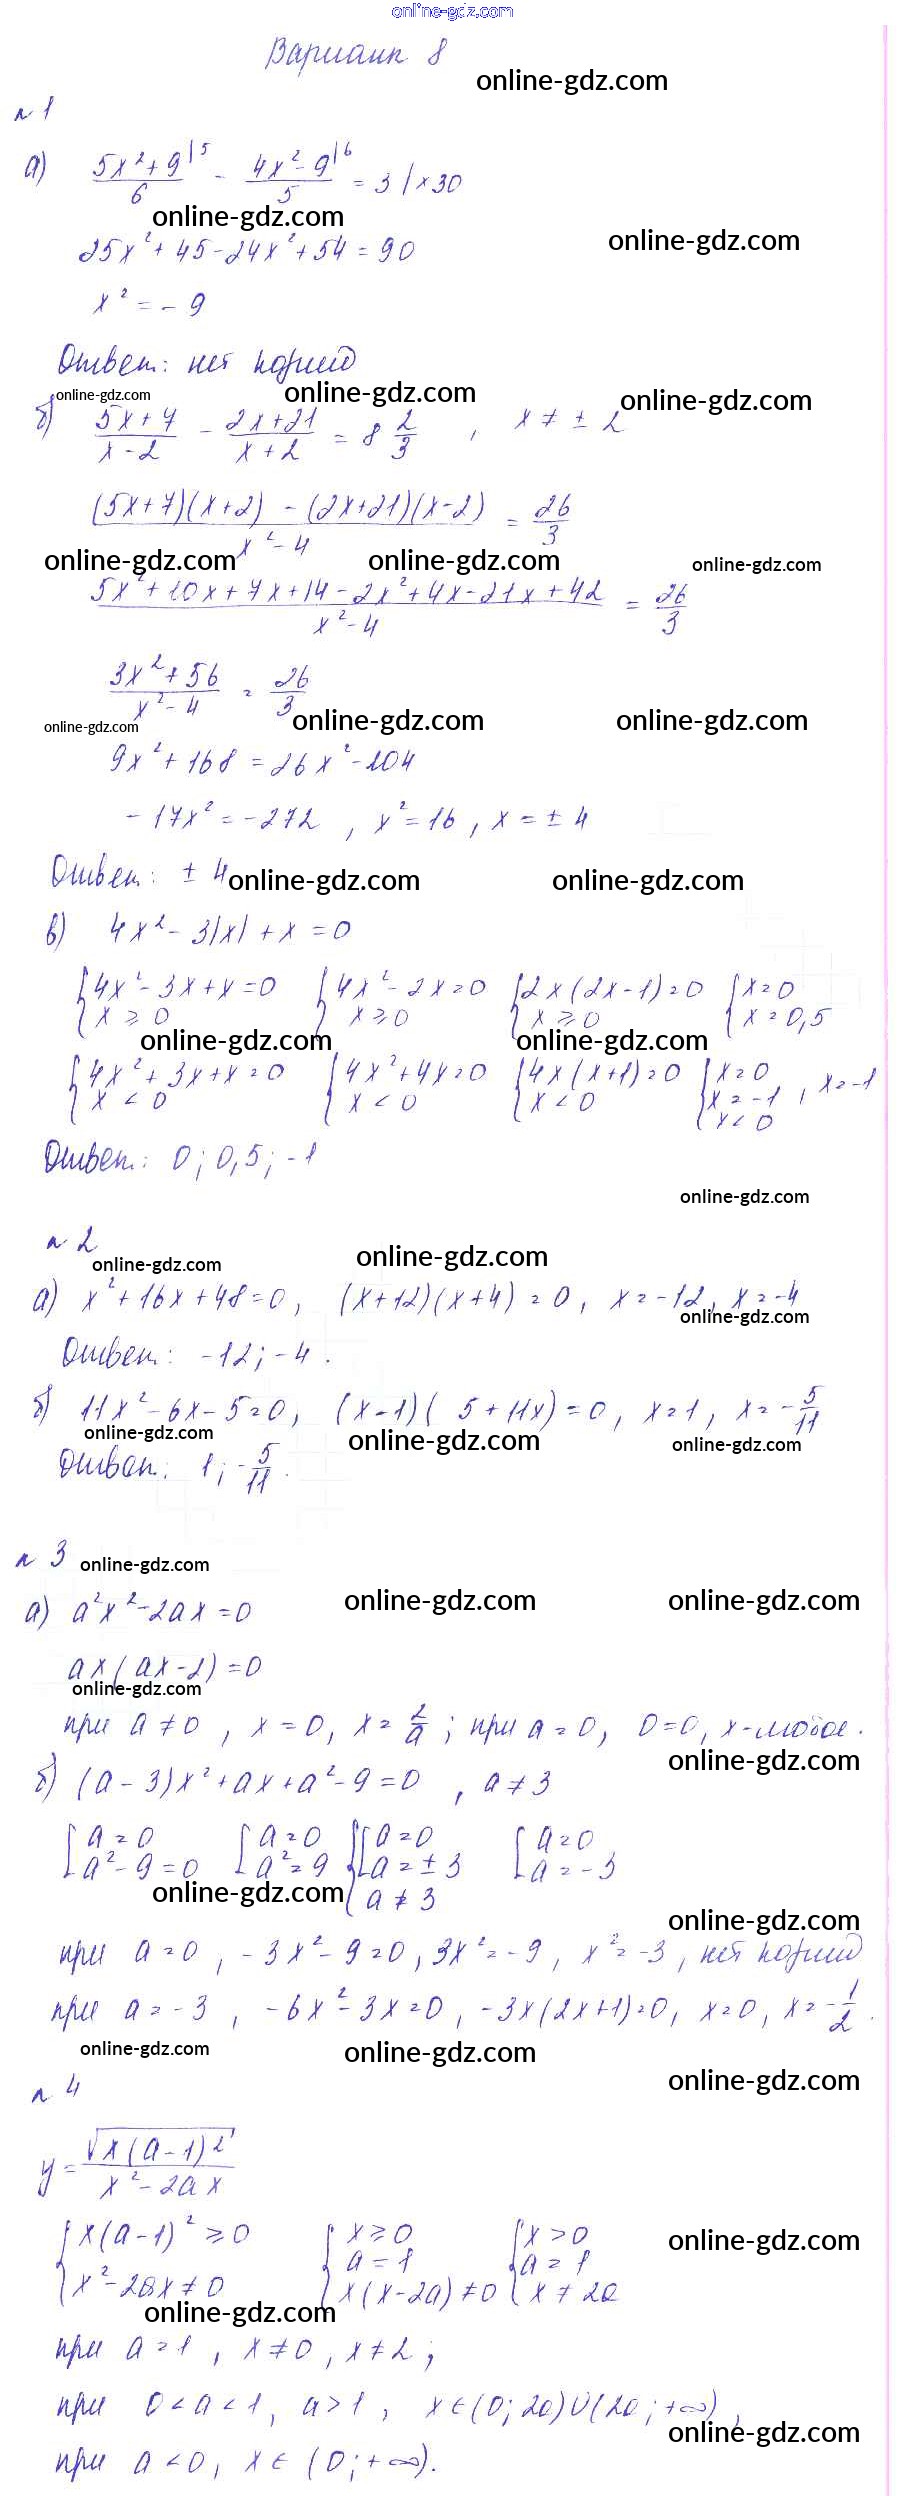 online-gdz.com
Вариант 8
online-gdz.com
№ 1
а) (5x²+9)/6 |5 - (4x²-9)/5 |6 = 3 | ×30
online-gdz.com
online-gdz.com
25x² + 45 - 24x² + 54 = 90
x² = -9
Ответ: нет корней
online-gdz.com online-gdz.com online-gdz.com
б) (5x+7)/(x-2) - (2x+21)/(x+2) = 8 2/3 , x ≠ ± 2
((5x+7)(x+2) - (2x+21)(x-2))/(x²-4) = 26/3
online-gdz.com online-gdz.com online-gdz.com
(5x²+10x+7x+14-2x²+4x-21x+42)/(x²-4) = 26/3
(3x²+56)/(x²-4) = 26/3
online-gdz.com online-gdz.com online-gdz.com
9x²+168 = 26x²-104
-17x² = -272 , x²=16 , x = ± 4
Ответ: ± 4
online-gdz.com online-gdz.com
в) 4x² - 3|x| + x = 0
{4x²-3x+x=0 {4x²-2x=0 {2x(2x-1)=0 {x=0
x ≥ 0 x ≥ 0 x ≥ 0 x = 0,5
online-gdz.com online-gdz.com
{4x²+3x+x=0 {4x²+4x=0 {4x(x+1)=0 {x=0
x < 0 x < 0 x < 0 x = -1 , x=-1
x < 0
Ответ: 0; 0,5; -1
online-gdz.com
№ 2
online-gdz.com online-gdz.com
а) x²+16x+48=0, (x+12)(x+4) = 0, x = -12, x = -4
online-gdz.com
Ответ: -12; -4.
б) 11x²-6x-5=0, (x-1)( 5+11x)=0, x=1, x = -5/11
online-gdz.com online-gdz.com online-gdz.com
Ответ: 1; -5/11.
№ 3
online-gdz.com
а) a²x²-2ax=0
online-gdz.com online-gdz.com
ax(ax-2)=0
online-gdz.com
при a ≠ 0 , x = 0, x = 2/a ; при a = 0, 0=0, x-любое.
online-gdz.com
б) (a-3)x²+ax+a²-9=0 , a ≠ 3
[a=0 [a=0 {[a=0 [a=0
a²-9=0 a²=9 a = ± 3 a = -3
a ≠ 3
online-gdz.com
online-gdz.com
при a=0 , -3x²-9=0, 3x²=-9 , x²=-3 , нет корней
при a=-3 , -6x²-3x=0, -3x(2x+1)=0, x=0, x=-1/2.
online-gdz.com online-gdz.com
online-gdz.com
№ 4
y = √(x(a-1)²)/(x²-2ax)
{x(a-1)² ≥ 0 {x ≥ 0 {x > 0
online-gdz.com
a = 1 a = 1
x²-2ax ≠ 0 x(x-2a) ≠ 0 x ≠ 2a
online-gdz.com
при a=1 , x ≠ 0 , x ≠ 2 ;
при 0 < a < 1, a > 1 , x ∈ (0; 2a) U (2a; +∞),
online-gdz.com
при a < 0, x ∈ (0; +∞).